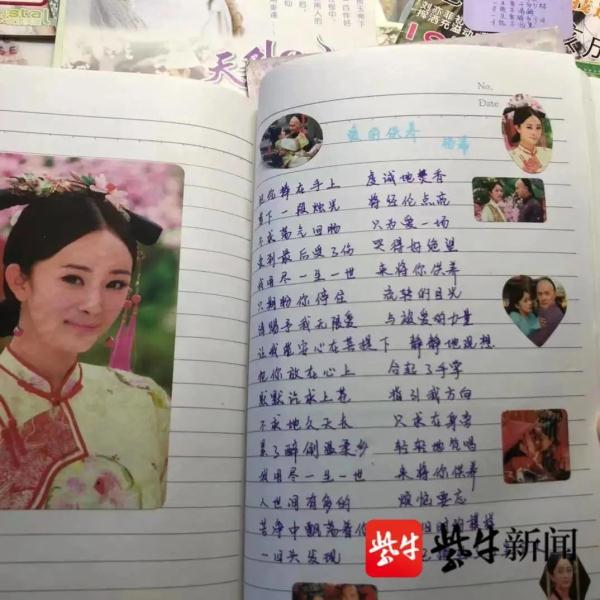 天外
刘亦菲
No.
Date
爱的供养 杨幂
把你捧在手上 虔诚地焚香
剪下一段烛光 将经纶点亮
不求荡气回肠 只为爱一场
爱到最后受了伤 哭得好绝望
我用尽一生一世 来将你供养
只期盼你停住 流转的目光
请赐予我无限爱 与被爱的力量
让我能安心在菩提下 静静地观想
把你放在心上 合起了手掌
默默许求上苍 指引我方向
不求地久天长 只求在身旁
累了醉倒温柔乡 轻轻地梵唱
我用尽一生一世 来将你供养
人世间有多的 烦恼要忘
苦净中飘荡着你 旧时的模样
一回头发现
紫牛 紫牛新闻